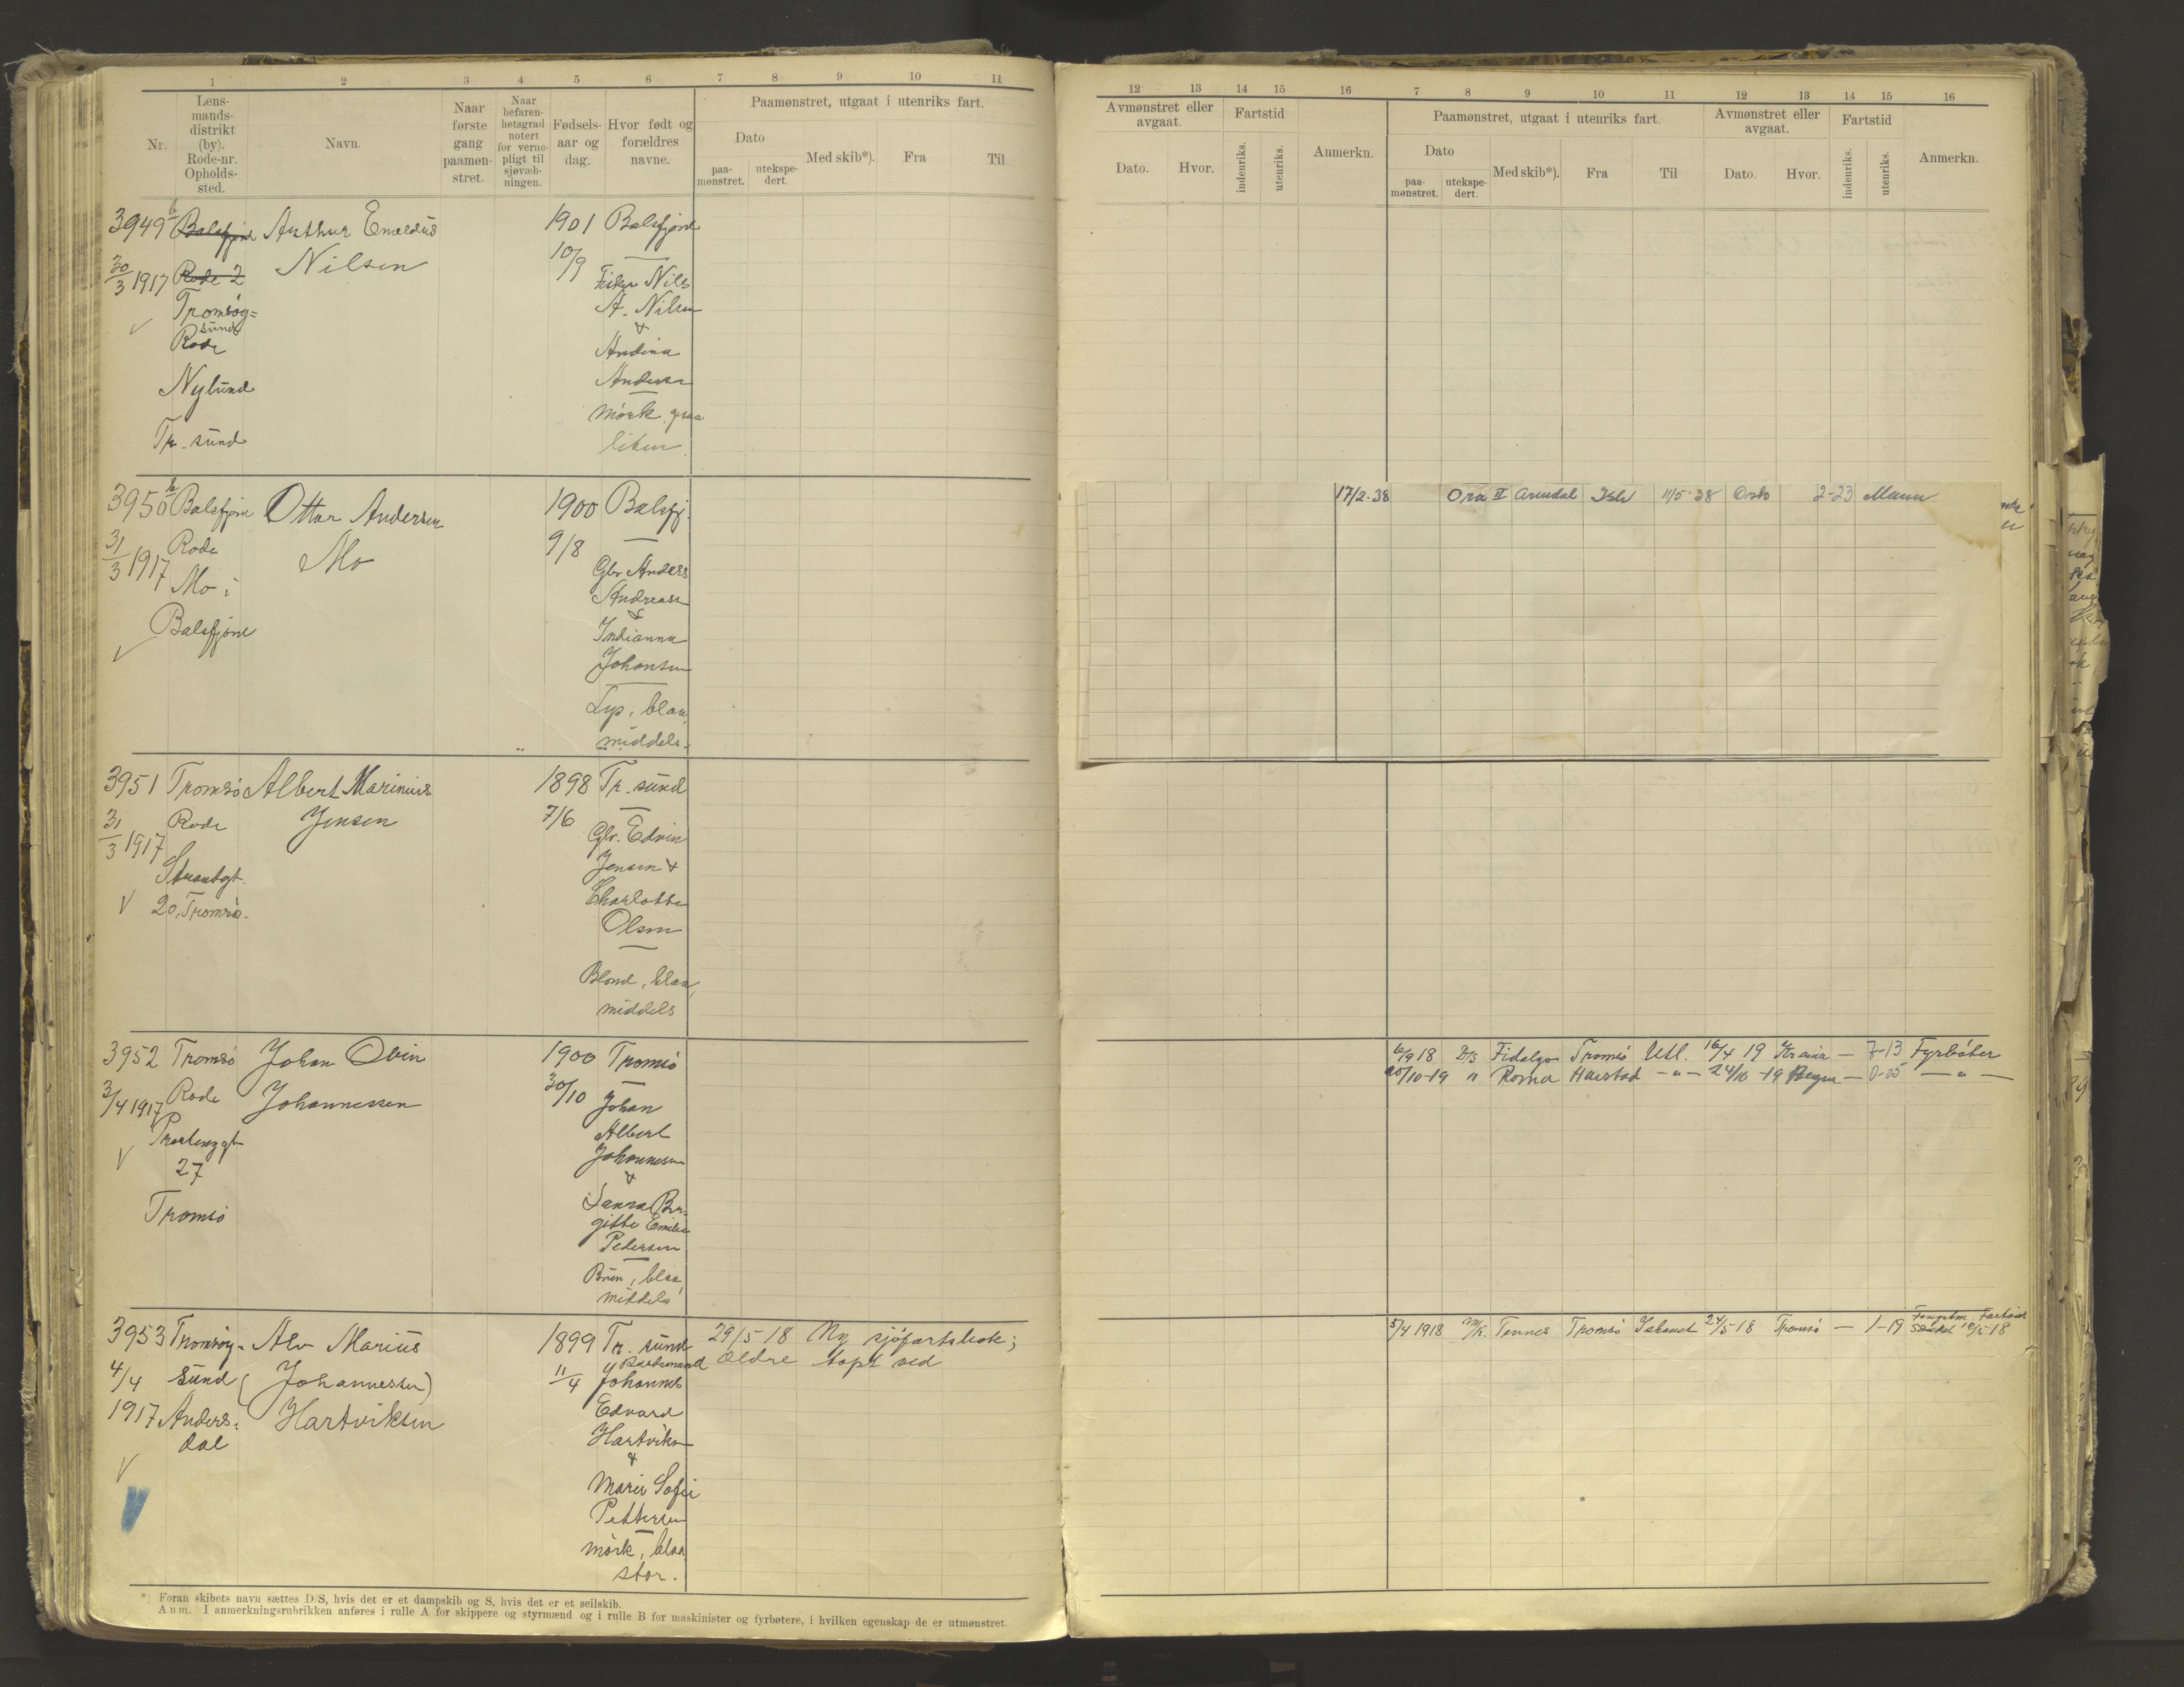 1 2 3 4 5 6 7 8 9 10 11
Nr.
Lens-
mands-
distrikt
(by).
Rode-nr.
Opholds-
sted.
Navn.
Naar
første
gang
paamøn-
stret.
Naar
befaren-
hetsgrad
notert
for verne-
pligt til
sjøvæb-
ningen.
Fødsels-
aar og
dag.
Hvor født og
forældres
navne.
Paamønstret, utgaat i utenriks fart.
Dato
paa-
mønstret.
utekspe-
dert.
Med skib*).
Fra
Til
3949 Balsfjord Arthur 1901 Balsfjord
30/3 1917 Rode 2 Nilsen 10/9
Fisker Nils
Tromsøy=
sund
A. Nilsen
&
Rode
Andina
Nylund
Anders
Tr. sund
Mørk, graa
liten
3950 Balsfjord Ottar Andersen 1900 Balsfj.
31/3 1917 Rode Mo 9/8
Mo i
Gbr Anders
Andreass
&
Balsfjord
Indianna
Johansen
Lys, blaa,
middels.
3951 Tromsø Albert Marinius 1898 Tr. sund
31/3 1917 Rode Jensen 7/6
Gbr. Edvin
Strandgt.
Jensen &
20, Tromsø.
Charlotte
Olsen
Blond, blaa,
middels
3952 Tromsø Johan Odin 1900 Tromsø
3/4 1917 Rode Johannessen 30/10
Johan
Albert
27
Johannessen
&
Tromsø
gitte Emilie
Pedersen
Brun, blaa,
middels
3953 Tromsøy- Alv Marius 1899 Tr. sund 29/5-18 Ny sjøfartsbok;
4/4 sund (Johannessen) 11/4 Johannes ældre tapt ved
1917 Anders= Hartviksen Edvard
dal
Hartviks
&
Marie Sofie
Pettersen
mørk, blaa
stor.
*) Foran skibets navn sættes D/S, hvis det er et dampskib og S, hvis det er et seilskib.
Anm. I anmerkningsrubrikken anføres i rulle A for skippere og styrmænd og i rulle B for maskinister og fyrbøtere, i hvilken egenskap de er utmønstret.
12 13 14 15 16 7 8 9 10 11 12 13 14 15 16
Avmønstret eller
avgaat.
Dato.
Hvor.
Fartstid
indenriks.
utenriks.
Anmerkn.
Paamønstret, utgaat i utenriks fart.
Dato
paa-
mønstret.
utekspe-
dert.
Med skib*).
Fra
Til
Avmønstret eller
avgaat.
Dato.
Hvor.
Fartstid
indenriks.
utenriks.
Anmerkn.
17/2-38 Ora II Arendal Ish 11/5-38 Oslo 2-23 Mann
6/9 18 D/S Fidalgo Tromsø Utl. 16/4 19 Kr.ania — 7-13 Fyrbøter
20/10-19 " Roma Harstad — " — 24/10-19 Bergen — 0-05 — " —
5/4 1918 M/K. Tennes Tromsø Ishavet 24/5-18 Tromsø — 1-19